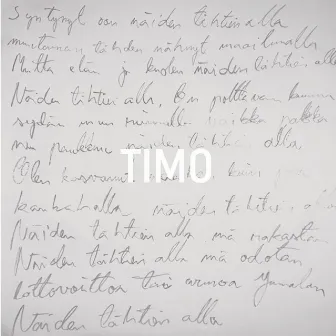 Syntynyt oon näiden tähtien alla
muutaman tähden nähnyt maailmalla
Mutta elän ja kuolen näiden tähtien alla
Näiden tähtien alla, On polttavan kuuma
sydän mun rinnalla vaikka
mun näiden tähtien alla
TIMO
Olen kasvanut
näiden tähtien alla
Näiden tähtien alla mä rakastan
Näiden tähtien alla mä odotan
Lottovoittoa tai armoa Jumalan
Näiden tähtien alla